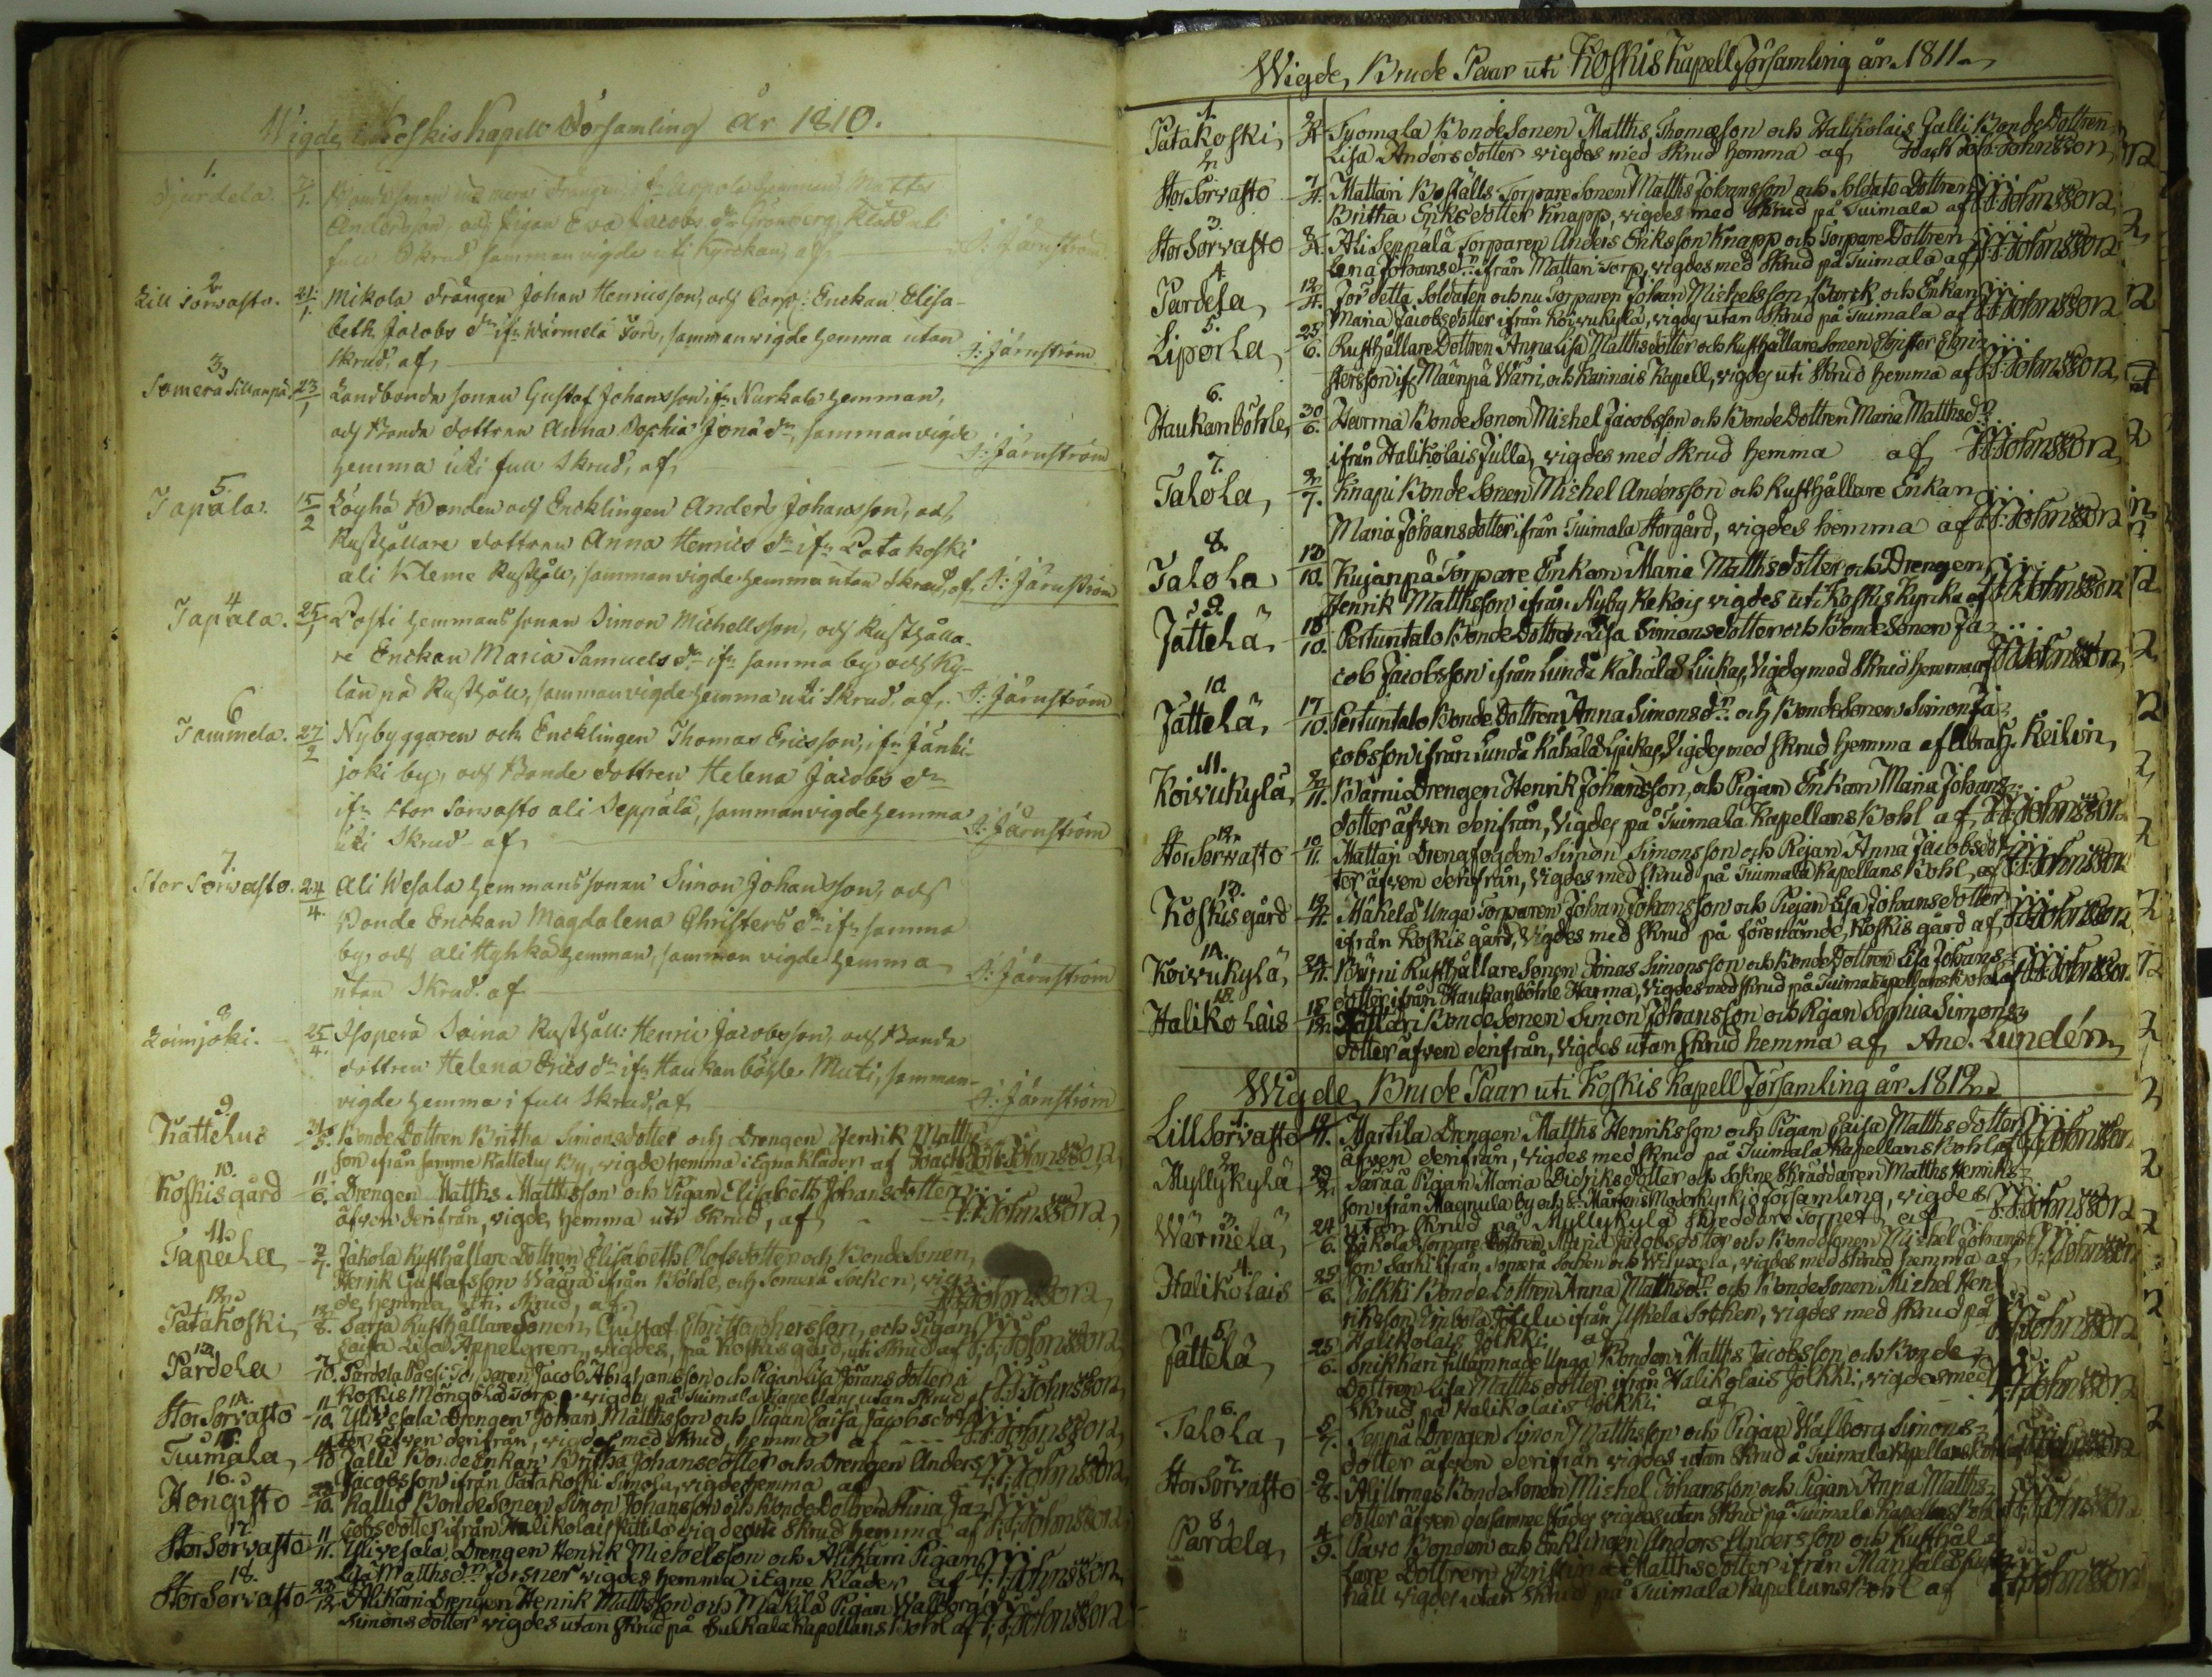 Wigde i Koskis Kapell Församling År 1810.
1.
Pardela. 7/1. Bondesonen
Andersson, och Pigan Eva Jacobs dr Grönberg, klädd uti
full Skrud sammanvigde uti Kyrckan, af J: Järnström
2.
Lill Sorvasto. 21/1. Mikola Drängen Johan Henricsson, och Corp: Enckan Elisa-
beth Jacobs dr ifr Wärmelä Torp, sammanvigde hemma utan
skrud, af J: Järnström
3.
Somera Sillanpä. 23/1 Landbonde sonen Gustaf Johansson ifr Nurkala hemman,
och Bonde dottren Anna Sophia Jona dr, sammanvigde
hemma uti full Skrud, af J: Järnström
5.
Tapala. 15/2 Löyhä Bonden och Encklingen Anders Johansson, och
Rusthållare dottren Anna Henrics dr ifr Patakoski
ali Kleme Rusthåll, sammanvigde hemma utan Skrud, af J: Järnström
4
Tapala. 25/1 Posti hemmans sonen Simon Michellsson, och Rusthålla-
re Enckan Maria Samuels dr ifr samma by och Ky-
länpä Rusthåll, sammanvigde hemma uti Skrud, af J: Järnström
6
Tammela. 27/2 Nybyggaren och Encklingen Thomas Ericsson, ifr Jänhi-
joki by, och Bonde dottren Helena Jacobs dr
ifr Stor Sorvasto ali Seppälä, sammanvigde hemma
uti Skrud af J: Järnström
7.
Stor Sorvasto. 24/4. Ali Wesala hemmans sonen Simon Johansson, och
Bonde Enckan Magdalena Christers dr ifr samma
by, och ali Hyhkä hemman, samman vigde hemma
utan Skrud. af J: Järnström
8
Loimjoki. 25/4. Isoperä Saina Rusthåll: Henric Jacobsson, och Bonde
dottren Helena Erics dr ifr Haukanböhle Muti, samman-
vigde hemma i full Skrud, af J: Järnström
9.
Kattelus 31/5. BondeDottren Britha Simonsdotter och Drengen Henrik Matths
son ifrån samme Kattelus By, vigde hemma i Egna Kläder af Joach: Joh: Johnsson
10.
Koskis gård 11/6. Drengen Matths Matthsson och Pigan Elisabeth Johansdotter
äfven derifrån, vigde, hemma uti Skrud, af J:J:Johnsson
11.
Tapala 3/7. Jakola Rusthållare Dottren Elisabeth Olofsdotter och BondeSonen,
Henrik Gustafsson Wägrä ifrån Böhle, och Somerå Socken, vig-
de, hemma, uti Skrud, af J:J:Johnsson
12.
Patakoski 12/8. Sarja RusthållareSonen, Gustaf Christophersson, och Pigan
Caisa Lisa Appelgren, vigdes, på Koskis gård, uti Skrud af J:J:Johnsson
13.
Pardela 7/10. Pardela Passi Torparen Jacob Abrahamsson och Pigan Lisa Jöransdotter i
Koskis Mängölä Torp vigdes på Tuimala Kapellans utan Skrud af J:J:Johnsson
14.
Stor Sorvasto 11/10. Ylivesala Drengen Johan Matthsson och Pigan Caisa Jacobsdot-
ter äfven derifrån, vigdes med Skrud, hemma af J:J:Johnsson
15.
Tuimala 14/10. Jalli BondeEnkan Britha Johansdotter och Drengen Anders
Jacobsson ifrån Patakoski Simola, vigde hemma af J:J:Johnsson
16.
Hongisto 28/10. Kallio BondeSonen Simon Johansson och BondeDottren Stina Ja-
cobsdotter ifrån Halikolais Kittilä vigde uti Skrud hemma af J:J:Johnsson
17.
Stor Sorvasto 11/11. Ylivesala Drengen Henrik Michelsson och AliKarri Pigan
Lisa Matthsdr Forsner vigdes hemma i Egne Kläder af J:J:Johnsson
18.
Stor Sorvasto 23/12. AliKarri Drengen Henrik Matthsson och Mäkilä Pigan Walborg
Simonsdotter vigdes utan Skrud på Tuimala Kapellans Bohl af J:J:Johnsson
Wigde, Brude Paar uti Koskis Kapell Församling år 1811.
1.
Patakoski, Tyomala BondeSonen Matths Thomæson och Halikolais Jalli BondeDottren
Lisa Andersdotter vigdes med Skrud hemma af Joach Joh: Johnsson
2.
Stor Sorvasto 7/4. Mattari Boställs TorpareSonen Matths Johansson och SoldateDottren
Britha Eriksdotter Knapp, vigdes med Skrud på Tuimala af J:J:Johnsson
3.
Stor Sorvasto Ali Seppälä Torparen Anders Eriksson Knapp och TorpareDottren
Lena Johansdr ifrån Mattari Torp, vigdes med Skrud på Tuimala af J:J:Johnsson
4.
Pardela, 12/4. För detta Soldaten och nu Torparen Johan Michelsson Barck och Enkan
Maria Jacobsdotter ifrån Koivukylä, vigdes utan Skrud på Tuimala af J:J:Johnsson
5.
Liporla, 25/6. RusthållareDottren AnnaLisa Matthsdotter och RusthållareSonen Christer Chri-
stersson ifr Mäenpä Warri, och Karinais Kapell, vigdes uti Skrud hemma af J:J:Johnsson
6.
Haukanböhle, 30/6. Harma BondeSonen Michel Jacobsson och BondeDottren Maria Matthsdr
ifrån Halikolais Julla, vigdes med Skrud hemma af J:J:Johnsson
7.
Talola, 2/7. Knapi BondeSonen Michel Andersson och Rusthållare Enkan
Maria Johansdotter ifrån Tuimala Storgård, vigdes hemma af J:J:Johnsson
8.
Talola 13/10. Kujanpä Torpare Enkan Maria Matthsdotter och Drengen
Henrik Matthsson ifrån Nyby Kekois vigdes uti Koskis Kyrka af J:J:Johnsson
9.
Jättelä 15/10. Pertuntalo BondeDottren Lisa Simonsdotter och BondeSonen Ja-
cob Jacobsson ifrån Lunda Kahala Luikas, vigdes med Skrud hemma af J:J:Johnsson
10.
Jättelä, 17/10. Pertuntalo BondeDottren Anna Simonsdr och BondeSonen Simon Ja-
cobsson ifrån Lunda Kahala Luikas, vigdes med Skrud hemma af Abrah: Keilin,
11.
Koivukylä, 3/11. Bärni Drengen Henrik Johansson, och Pigan Enkan Maria Johans-
dotter äfven derifrån, vigdes på Tuimala Kapellans Bohl af J:J:Johnsson
12.
Stor Sorvasto 10/11. Mattari Drengfogden Simon Simonsson och Pigan Anna Jacobsdot-
ter äfven derifrån, vigdes med Skrud på Tuimala Kapellans Bohl, af J:J:Johnsson
13.
Koskis gård Mäkelä Unga Torparen Johan Johansson och Pigan Lisa Johansdotter
ifrån Koskis gård, vigdes med Skrud på förenämde Koskis gård af J:J:Johnsson
14.
Koivukylä, 24/11. Bärni RusthållareSonen Jonas Simonsson och BondeDottren Lisa Johans-
dotter ifrån Haukanböhle Harma, vigdes med Skrud på Tuimala Kapellans Bohl af J:J:Johnsson
15.
Halikolais BondeSonen Simon Johansson och Pigan Sophia Simons-
dotter äfven derifrån, vigdes utan Skrud hemma af And. Lundén,
Wigde, Brude Paar uti Koskis Kapell Församling år 1812.
1.
Lill Sorvasto Martila Drengen Matths Henriksson och Pigan Caisa Matthsdotter
äfven derifrån, vigdes med Skrud på Tuimala Kapellans Bohl af J:J:Johnsson
2.
Myllykylä Pigan Maria Didriksdotter och SockneSkräddaren Matths Henriks-
son ifrån Magnula by och St Mårtens Moderkyrkioförsamling, vigdes
utan Skrud på Myllykylä Skreddare Torpet af J:J:Johnsson
3.
Wärmelä, 24/6. Jakola Torpare Dottren Maria Jacobsdotter och BondeSonen Michel Johans-
son Sarki ifrån Somerå Sochen och Wiluxela, vigdes med Skrud hemma af J:J:Johnsson
4.
Halikolais 25/6. Jolkki BondeDottren Anna Matthsdr och BondeSonen Michel Hen-
riksson ifrån Uskela Sochen, vigdes med Skrud på
Halikolais Jolkki af J:J:Johnsson
5.
Jättelä, 25/6. Snikkari tillämnade Unga Bonden Matths Jacobsson och Bonde
Dottren Lisa Matthsdotter ifrån Halikolais Jolkki, vigdes med
Skrud på Halikolais Jolkki af J:J:Johnsson
6.
Talola, 5/7. Seppä Drengen Simon Matthsson och Pigan Walborg Simons-
dotter äfven derifrån vigdes utan Skrud å Tuimala Kapellans Bohl af J:J:Johnsson
7.
Stor Sorvasto BondeSonen Michel Johansson och Pigan Anna Matths-
dotter äfven vigdes utan Skrud på Tuimala Kapellans Bohl af J:J:Johnsson
8
Pardela, 4/9. Pavo Bonden och Enklingen Anders Andersson och Rusthål-
lare Dottren Christina Matthsdotter ifrån
håll vigdes utan Skrud på Tuimala Kapellans Bohl af J:J:Johnsson